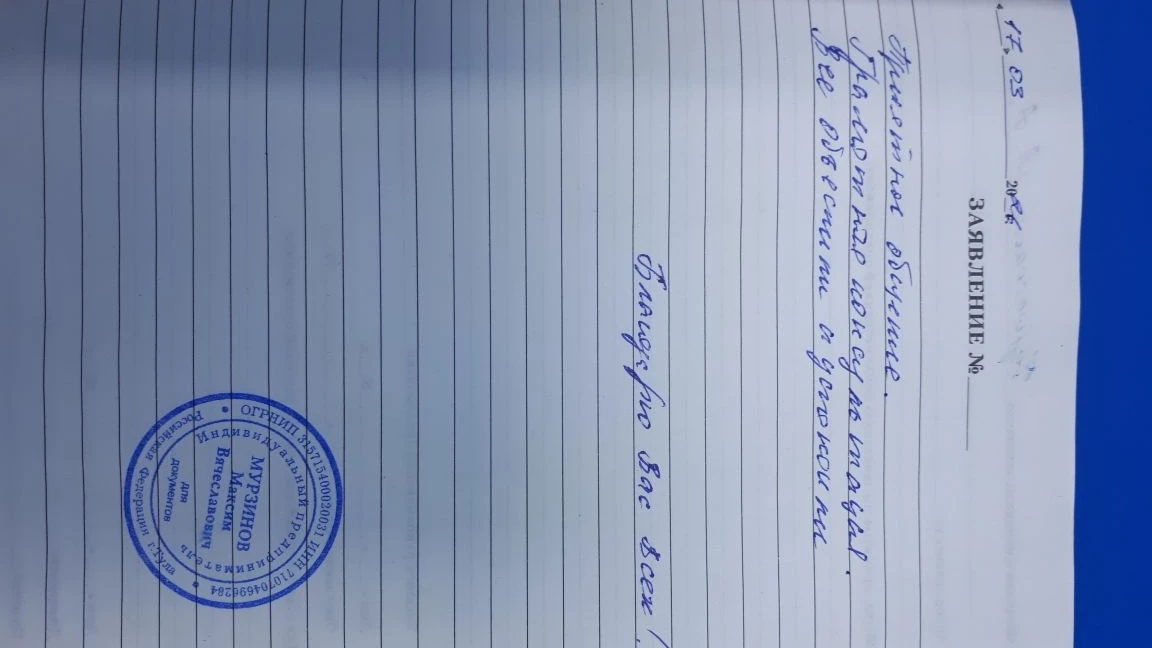 17. 03 2026
ЗАЯВЛЕНИЕ №
Приятное общение.
Грамотная консультация.
Все объяснили и успокоили
Благодарю Вас всех!
ОГРНИП 315715400020031 ИНН 710704696284
Индивидуальный предприниматель
МУРЗИНОВ
Максим
Вячеславович
для
документов
Российская Федерация г.Тула